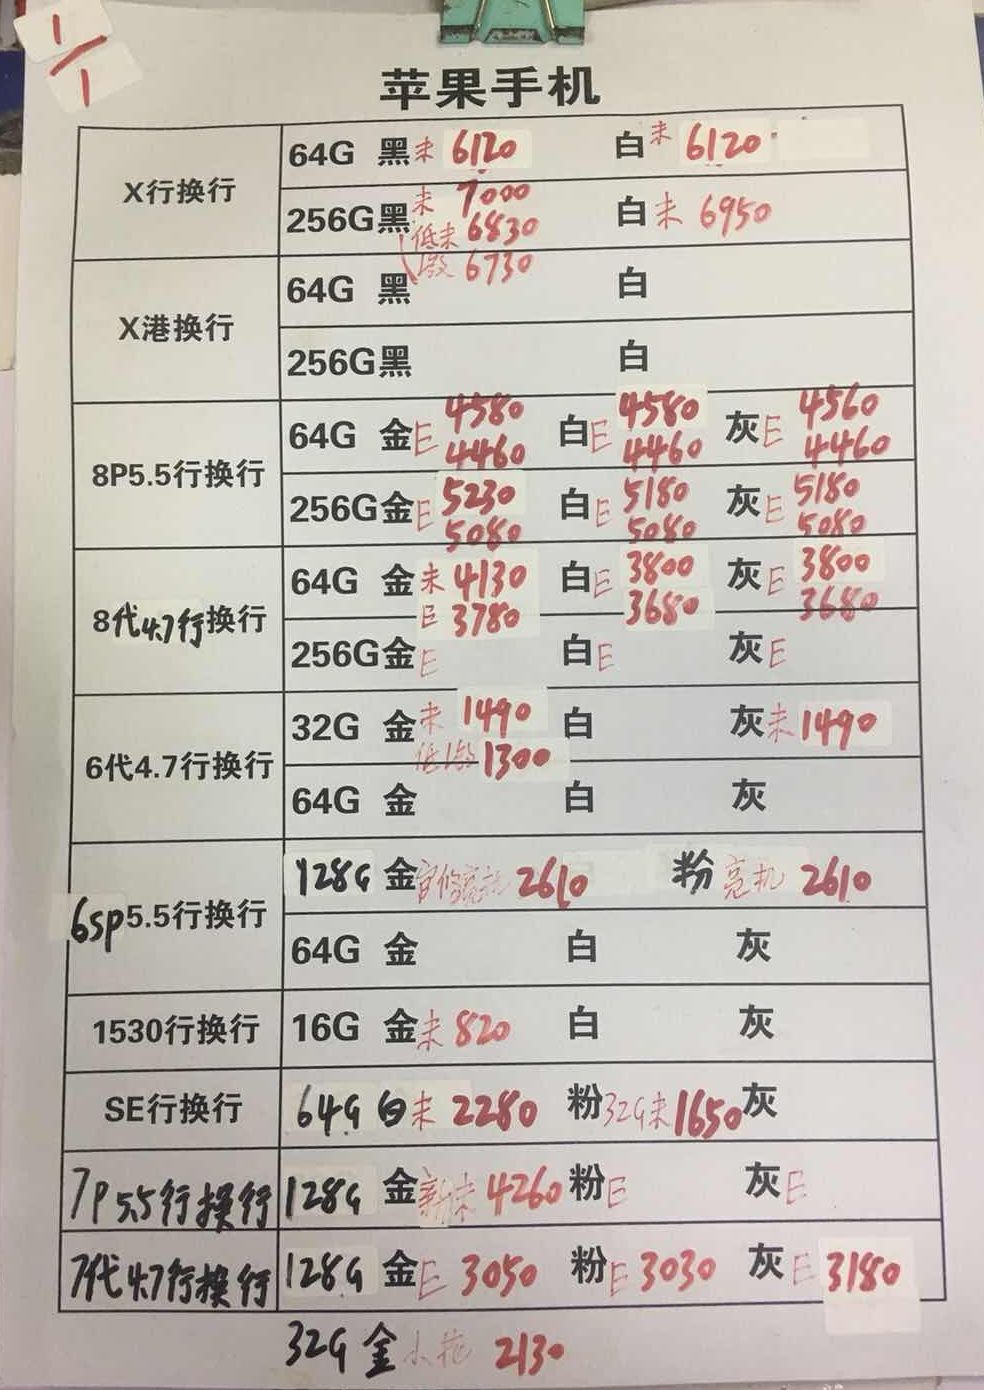 1/1
苹果手机
X行换行
64G 黑未 6120 白未 6120
256G黑未 7000 白未 6950
低未 6830
激 6730
X港换行
64G 黑 白
256G黑 白
8P5.5行换行
64G 金E 4580 白E 4580 灰E 4560
4460 4460 4460
256G金E 5230 白E 5180 灰E 5180
5080 5080 5080
8代4.7行换行
64G 金未 4130 白E 3800 灰E 3800
E 3780 3680 3680
256G金E 白E 灰E
6代4.7行换行
32G 金未 1490 白 灰未 1490
低激 1300
64G 金 白 灰
6sp5.5行换行
128G 金官修亮机 2610 粉 亮机 2610
64G 金 白 灰
1530行换行
16G 金未 820 白 灰
SE行换行
64G 白未 2280 粉32G未1650灰
7P5.5行换行
128G 金新未 4260 粉E 灰E
7代4.7行换行
128G 金E 3050 粉E 3030 灰E 3180
32G 金小花 2130